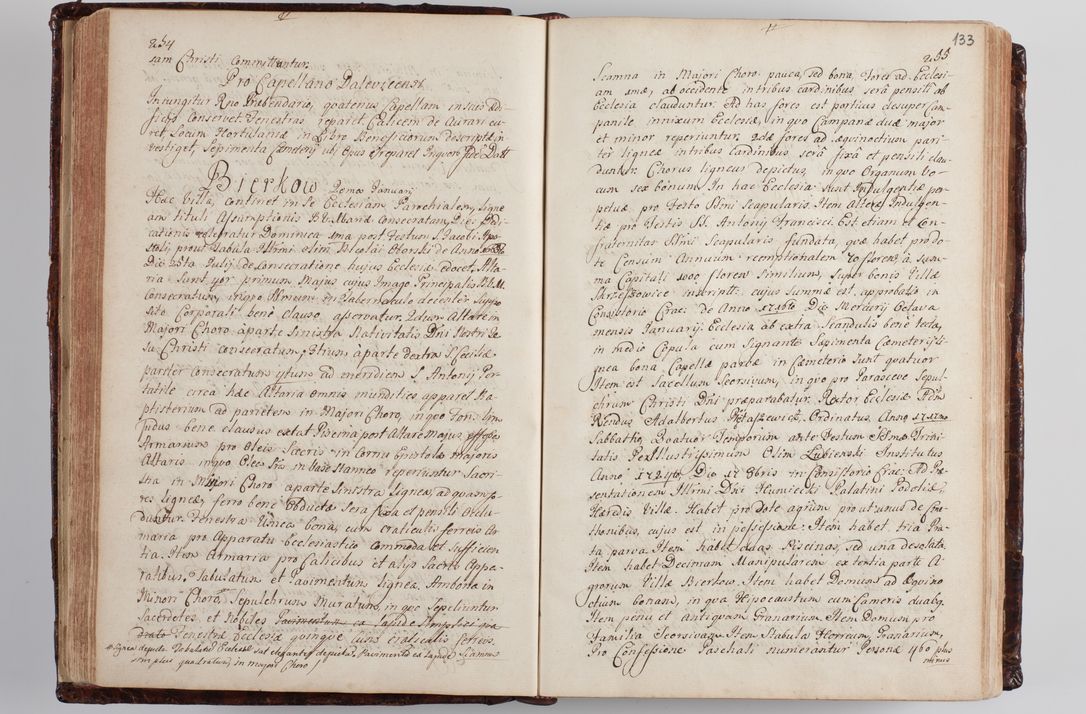 254
sam Christi Committuntur.
Pro Capellano Dalevicensi
Iniungitur Rndo Præbendario, quatenus Capellam in suis Ædi-
ficijs Conservet Fenestras reparet, Calicem de Aurari cu-
ret, Locum Hortulaniæ in Libro Beneficiorum descriptæ in-
vestiget, Sepimenta Cæmeterij ubi Opus repraret In quorum fidem Datt
Bierkow Januarij
Hæc Villa, continet in se Ecclesiam Parochialem, Ligne-
am tituli Assumptionis B.V. Mariæ Consecratam, Dies Dedi-
cationis celebratur Dominica ima post Festum S. Jacobi Apo-
stoli prout Tabula Illmi olim Nicolai Oborski de Anno
Die 25ta Julij de Consecratione hujus Ecclesiæ edocet, Alta-
ria sunt 4or primum Majus cujus Imago Principalis B.V.M.
Consecratum, in quo Stmum in Tabernaculo decenter Suppo-
sito Corporali bene clauso asservatur. 2dum Altare in
Majori Choro à parte sinistra Nativitatis Dni Nostri Je-
su Christi consecratum, 3tium à parte dextra S. Ceciliæ
pariter consecratum 4tum ad meridiem S. Antonij Por-
tatile circa hæc Altaria omnis mundities apparet Ba-
ptisterium ad parietem in Majori Choro, in quo Fons lim-
pidus bene clausus extat Piscina post Altare Majus
Armarium pro Oleis Sacris in Cornu Epistolæ Majoris
Altaris in quo Olea Sta in Vase Stanneo reperiuntur Sacri-
stia in Minori Choro à parte sinistra Lignea, ad quam fo-
res ligneæ, ferro bene obductæ Sera fixa et pensili occlu-
duntur. Fenestra Unica bona, cum craticulis ferreis Ar-
maria pro Apparatu Ecclesiastico Commoda et Sufficien-
tia. Item Armaria pro Calicibus et alijs Sacris Appa-
ratibus. Tabulatum et Pavimentum Lignea, Ambona in
Minori Choro, Sepulchrum Muratum, in quo Sepeliuntur
Sacerdotes, et Nobiles Pavimentum ex Lapide
Fenestræ Ecclesiæ quinque cum craticulis ferreis.
Lignea depicta Tabulatio Ecclesiæ sat eleganter depicta, Pavimento ex Lapide Scamna
simplex quadratum, in majori Choro /
133
255
Scamna in Majori Choro pauca, sed bona, Fores ad Ecclesi-
am unæ, ab occidente in tribus cardinibus serâ pensili ab
Ecclesia clauduntur. Ad has fores est porticus desuper Cam-
panile innixum Ecclesiæ, in quo Campanæ duæ major
et minor reperiuntur, 2dæ fores ad æquinoctium pari-
ter ligneæ in tribus Cardinibus serâ fixâ et pensili clau-
duntur. Chorus ligneus depictus, in quo Organum Vo-
cum sex bonum. In hac Ecclesia sunt Indulgentiæ per-
petuæ pro Festo Stmi Scapularis. Item Alteræ Indulgen-
tiæ pro Festis SS. Antonij Francisci. Est etiam et Con-
fraternitas Stmi Scapularis fundata, quæ habet pro do-
te Censum Annuum reemptionalem 70 floren. à sum-
ma Capitali 1000 floren similium, super bonis Villæ
Skrzeszowice inscript: cujus summæ est approbatio in
Consistorio Crac: de Anno Die Mercurij Octava
mensis Januarij. Ecclesia ab extra Scandulis bene tecta,
in medio Copula cum Signante Sæpimenta Cæmeterij Li-
gnea bona, Capellæ parvæ in Cæmeterio sunt quatuor
Item est Sacellum Seorsivum, in quo pro Parasceve Sepul-
chrum Christi Dni præparabatur. Rector Ecclesiæ Adm
Rendus Adalbertus Ptaszkiewicz, Ordinatus Anno
Sabbatho Quatuor Temporum ante Festum Stmæ Trini-
tatis Per Illustrissimum Olim Łubienski Institutus
Anno Die 17 8bris in Consistorio Crac: Ad Præ-
sentationem Illmi Dni Humiecki Palatini Podoliæ,
Hærdis Villæ. Habet pro dote agrum prout unus de Cme-
thonibus, cujus est in possessione. Item habet tria Pra-
ta parva. Item habet duas Piscinas, sed una desolata.
Item habet Decimam Manipularem ex tertia parte A-
grorum Villæ Bierkow. Item habet Domum ad Æquino-
ctium bonam, in qua Hipocaustum cum Cameris duabq
Item penu et antiquum Granarium, Item Domum pro
Familia Seorsivam Item Stabula Horreum, Granarium,
Pro Confessione Paschali numerantur Personæ 460 plus
minus